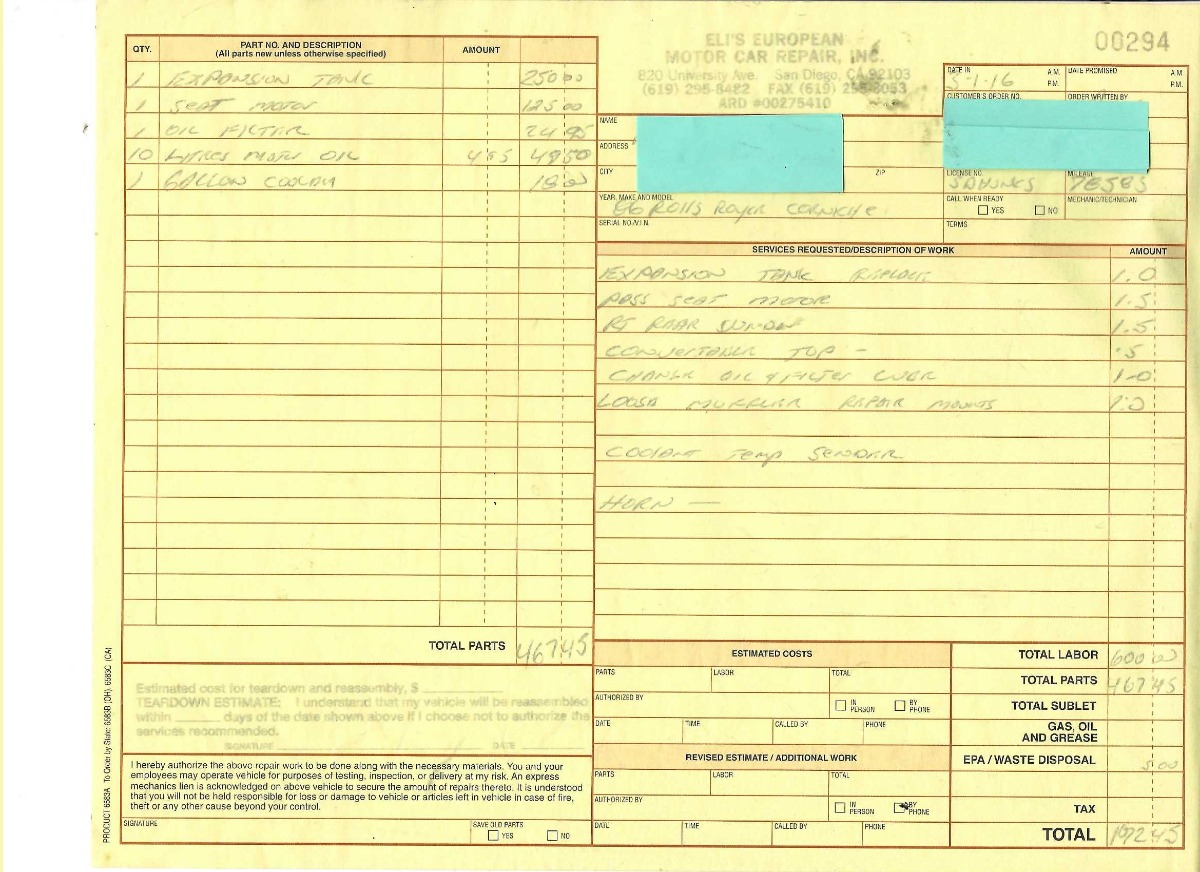 ELI'S EUROPEAN
MOTOR CAR REPAIR, INC.
820 University Ave. San Diego, CA 92103
(619) 295-8482 FAX (619) 295-8053
ARD #00275410
00294
DATE IN 5-1-16 A.M. P.M. DATE PROMISED A.M. P.M.
CUSTOMER'S ORDER NO. ORDER WRITTEN BY
NAME
ADDRESS
CITY ZIP
LICENSE NO. MILEAGE 78585
YEAR, MAKE AND MODEL Rolls Royce Corniche
CALL WHEN READY YES NO MECHANIC/TECHNICIAN
SERIAL NO./V.I.N. TERMS
QTY. PART NO. AND DESCRIPTION AMOUNT
(All parts new unless otherwise specified)
1 EXPANSION TANK 250 00
1 SEAT MOTOR 125 00
1 OIL FILTER 24 95
10 LITRES MOTOR OIL 4 95 49 50
1 GALLON COOLANT 18 00
TOTAL PARTS 467 45
SERVICES REQUESTED/DESCRIPTION OF WORK AMOUNT
EXPANSION TANK REPLACE 1.0
PASS SEAT MOTOR 1.5
RT REAR WINDOW 1.5
TOP - .5
CHANGE OIL & FILTER LUBE 1-0
LOOSE MUFFLER REPAIR MOUNTS 1.0
COOLANT Temp SENDER
HORN —
Estimated cost for teardown and reassembly, $
TEARDOWN ESTIMATE: I understand that my vehicle will be reassembled
within days of the date shown above if I choose not to authorize the
services recommended.
SIGNATURE DATE
I hereby authorize the above repair work to be done along with the necessary materials. You and your
employees may operate vehicle for purposes of testing, inspection, or delivery at my risk. An express
mechanics lien is acknowledged on above vehicle to secure the amount of repairs thereto. It is understood
that you will not be held responsible for loss or damage to vehicle or articles left in vehicle in case of fire,
theft or any other cause beyond your control.
SIGNATURE SAVE OLD PARTS YES NO
ESTIMATED COSTS
PARTS LABOR TOTAL
AUTHORIZED BY IN PERSON BY PHONE
DATE TIME CALLED BY PHONE
REVISED ESTIMATE / ADDITIONAL WORK
PARTS LABOR TOTAL
AUTHORIZED BY IN PERSON BY PHONE
DATE TIME CALLED BY PHONE
TOTAL LABOR 600 00
TOTAL PARTS 467 45
TOTAL SUBLET
GAS, OIL
AND GREASE
EPA / WASTE DISPOSAL 5.00
TAX
TOTAL 1072 45
PRODUCT 6583A To Order by State: 6583B (OH), 6583C (CA)